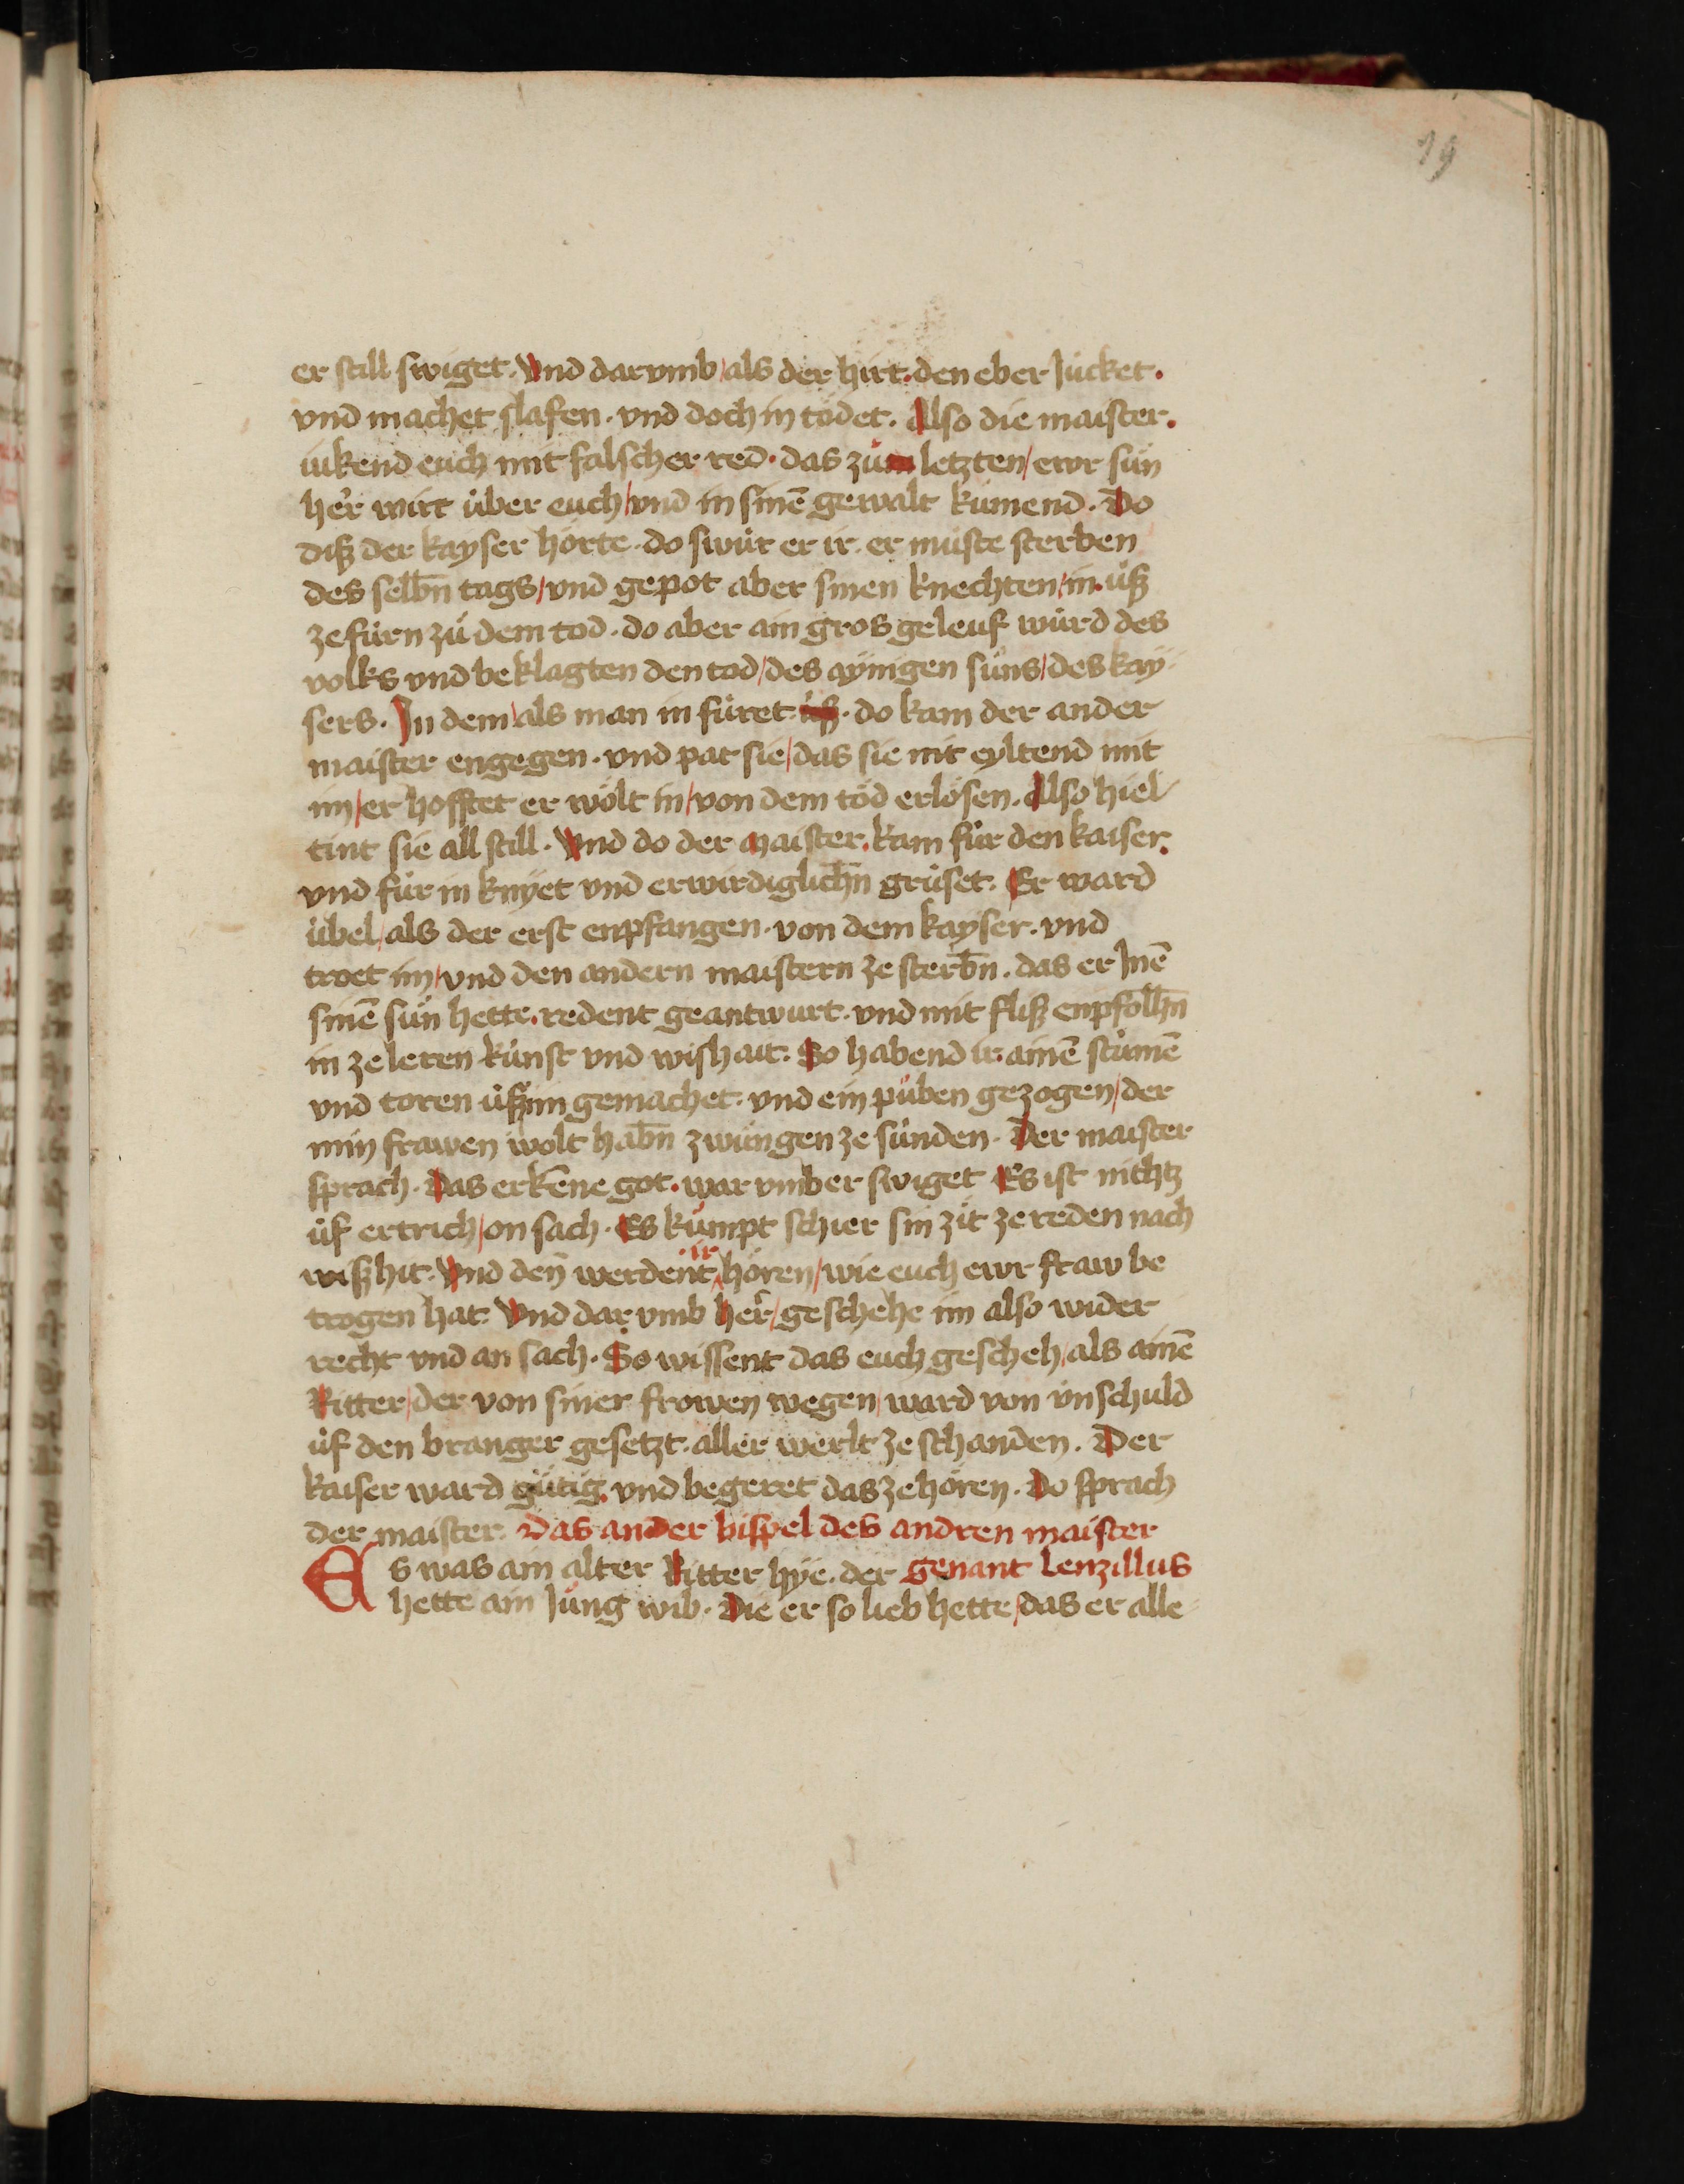 19
er still swiget. Vnd darvmb / als der hirt. den eber Jucket.
vnd machet slafen. vnd doch in tödet. Also die maister.
iukend euch mit falscher red. das zů letzten / ewr sůn
her wirt über euch / vnd in sinē gewalt kumend. Do
diß der kayser hörte. do swůr er ir. er můste sterben
des selbn̄ tags / vnd gepot aber sinen knechten / in. ůß
zefürn zů dem tod. do aber ain gros geleuf wůrd des
volks vnd beklagten den tod / des aynigen sůns / des kay-
sers. In dem / als man in fůret ůß. do kam der ander
maister engegen. vnd pat sie / das sie nit eyltend mit
im / er hofftet er wölt in / von dem tod erlösen. Also hiel-
tint sie all still. Vnd do der maister. kam für den kaiser.
vnd für in knyet vnd erwirdiglichn̄ grůset. Er ward
übel / als der erst enpfangen. von dem kayser. vnd
troet im / vnd den andern maistern ze sterbn̄. das er Inē
sinē sůn hette. redent geantwurt. vnd mit fliß enpfolhn̄
in ze leren kůnst vnd wishait. So habend ir. ainē stůmē
vnd toren ůß im gemachet. vnd ein půben gezogen / der
min frawen wolt habn̄ zwůngen ze sünden. Der maister
sprach. Das erkēne got. war vmb er swiget Es ist nichtz
ůf ertrich / on sach. Es kůmpt schier sin zit ze reden nach
wißhit. Vnd den̄ werdent ir hören / wie euch ewr fraw be
trogen hat. Vnd dar vmb her / geschehe im also wider
recht vnd an sach. So wissent das euch gescheh / als ainē
Ritter / der von siner frowen wegen / ward von vnschuld
ůf den branger gesetzt. aller werlt ze schanden. Der
kaiser ward gütig. vnd begeret das ze hören. Do sprach
der maister. Das ander bispel des andren maister
Es was ain alter Ritter hye. der genant Lenzillus
hette ain Jung wib. Die er so lieb hette / das er alle-